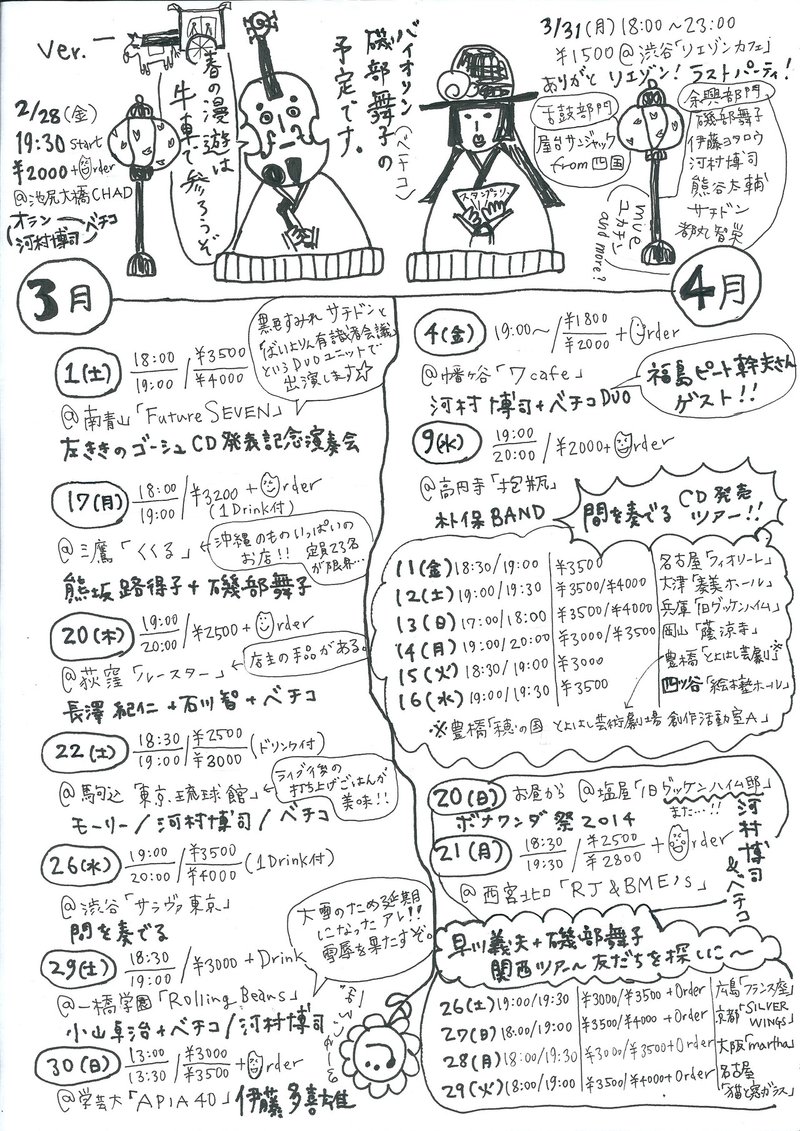 ver. 一
2/28(金)
19:30 start
¥2000+Order
@池尻大橋CHAD
オラン
(河村博司)ベチコ
春の漫遊は
牛車で参ろうぞ
バイオリン(ベチコ)
磯部舞子の
予定です。
スタンプラリー
3/31(月)18:00〜23:00
¥1500@渋谷「リエゾンカフェ」
ありがと リエゾン! ラストパーティ!
舌鼓部門
屋台サンジャック
from四国
余興部門
磯部舞子
伊藤ヨタロウ
河村博司
熊谷太輔
サチドン
都丸智栄
mue
ユカチン
and more?
3月
1(土) 18:00/19:00 / ¥3500/¥4000
黒色すみれ サチドンと
「ばいよりん有識者会議」
というDUOユニットで
出演します☆
@南青山「Future SEVEN」
左ききのゴーシュ CD発表記念演奏会
17(月) 18:00/19:00 / ¥3200+Order
(1Drink付)
@三鷹「くくる」
沖縄のものいっぱいの
お店!! 定員23名
が限界…
熊坂路得子+磯部舞子
20(木) 19:00/20:00 / ¥2500+Order
@荻窪「ルースター」
店主の手品がある。
長澤紀仁+石川智+ベチコ
22(土) 18:30/19:00 / ¥2500/¥3000 (ドリンク付)
@駒込「東京琉球館」
ライブ後の
打ち上げごはんが
美味!!
モーリー/河村博司/ベチコ
26(水) 19:00/20:00 / ¥3500/¥4000 (1Drink付)
@渋谷「サラヴァ東京」
間を奏でる
29(土) 18:30/19:00 / ¥3000+Drink
大雪のため延期
になったアレ!!
雪辱を果たすぞ。
@一橋学園「Rolling Beans」
小山卓治+ベチコ/河村博司
30(日) 13:00/13:30 / ¥3000/¥3500+Order
@学芸大「APIA40」伊藤多喜雄
4月
4(金) 19:00〜 / ¥1800/¥2000 +Order
@幡ヶ谷「7cafe」
河村博司+ベチコDUO
福島ピート幹夫さん
ゲスト!!
9(水) 19:00/20:00 / ¥2000+Order
@高円寺「抱瓶」
朴保BAND
間を奏でる CD発売
ツアー!!
11(金) 18:30/19:00 ¥3500 名古屋「フィオリーレ」
12(土) 19:00/19:30 ¥3500/¥4000 大津「奏美ホール」
13(日) 17:00/18:00 ¥3500/¥4000 兵庫「旧グッケンハイム」
14(月) 19:00/20:00 ¥3000/¥3500 岡山「蔭凉寺」
15(火) 18:30/19:00 ¥3000 豊橋「とよはし芸劇」※
16(水) 19:00/19:30 ¥3500 四ツ谷「絵本塾ホール」
※豊橋「穂の国 とよはし芸術劇場 創作活動室A」
20(日) お昼から @塩屋「旧グッケンハイム邸」
また…!!
ボナワンダ祭2014
21(月) 18:30/19:30 / ¥2500/¥2800 +Order
@西宮北口「RJ&BME's」
河村博司&ベチコ
早川義夫+磯部舞子
関西ツアー〜友だちを探しに〜
26(土) 19:00/19:30 ¥3000/¥3500+Order 広島「フランス座」
27(日) 18:00/19:00 ¥3500/¥4000+Order 京都「SILVER WINGS」
28(月) 18:00/19:30 ¥3000/¥3500+Order 大阪「martha」
29(火) 18:00/19:00 ¥3500/¥4000+Order 名古屋「猫と窓ガラス」